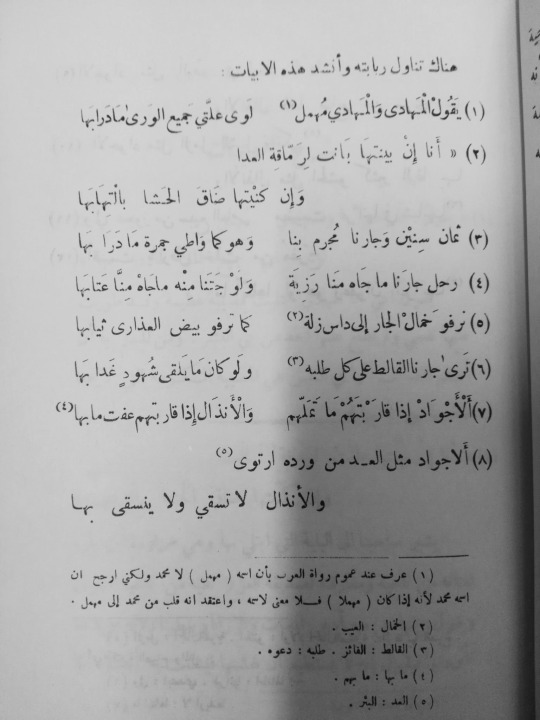 هناك تناول ربابته وأنشد هذه الابيات :
(١) يَقُولْ الْمَهادى وَالْمَهادي مُهمل (١) لَوى عِلَّتي جَميع الوَرىٰ مَا دَرابَها
(٢) « أَنا إنْ بِينتها بَانت لِرمَّاقة العدا
وَإن كَنَيْتها ضَاقَ الحَشا بالْتهابَها
(٣) ثمان سِنِيْن وَجارنا مُجرم بنا وَهو كما وَاطي جمرة ما دَرَا بها
(٤) رحل جارنا ما جاه منا رَزِيَة وَلوْ جَتنا مِنْه ماجاهْ مِنَّا عتابَها
(٥) نرفو خمالْ الجار إلى داس زلة (٢) كَما ترفو بيض العذارى ثيابها
(٦) تَرىٰ جارنا القالط على كل طلبه (٣) ولو كان مَا يَلقى شُهودٍ غَدا بَها
(٧) أَلْأَجْوادْ إذا قارَبْتهُمْ مَا تَمَلّهم وَالْأنذال إِذا قاربتهم عفت مابها (٤)
(٨) أَلاجواد مثل العـد من ورده ارتوى (٥)
والأنذال لا تسقي ولا ينسقى بهـا
(١) عرف عند عموم رواة العرب بأن اسمه ( مهمل ) لا محمد ولكني ارجح ان
اسمه محمد لأنه إذا كان ( مهملا ) فـلا معنى لاسمه ، واعتقد انه قلب من محمد إلى مهمل .
(٢) الخمال : العيب .
(٣) القالط : الفائز . طلبه : دعوه .
(٤) ما بها : ما بهم .
(٥) العد : البئر .